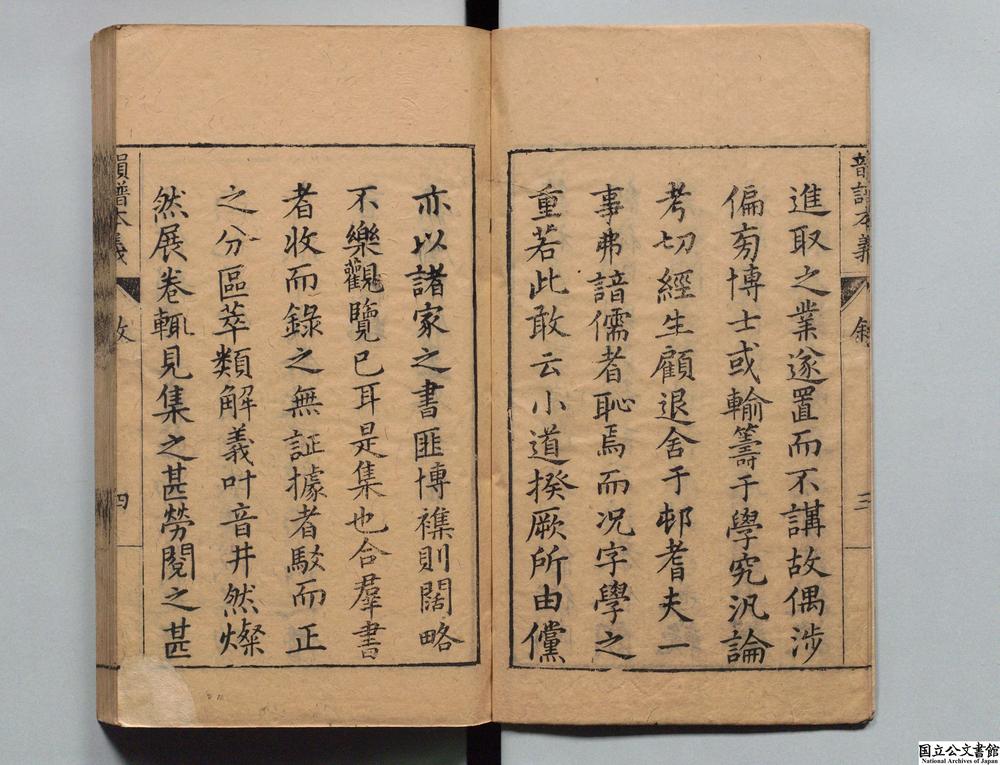 音譜本義
叙
三
進取之業遂置而不講故偶涉
偏旁博士或輸籌于學究汎論
考切經生顧退舍于邨耆夫一
事弗諳儒者恥焉而况字學之
重若此敢云小道揆厥所由儻
亦以諸家之書匪博襍則闊略
不樂觀覽已耳是集也合羣書
者收而錄之無証據者駁而正
之分區萃類解義叶音井然燦
然展卷輒見集之甚勞閱之甚
韻譜本義
四
国立公文書館
National Archives of Japan